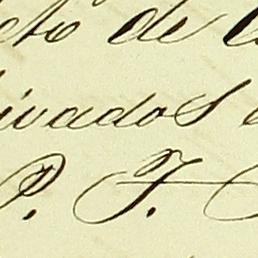 eto de
ivados
P. J.